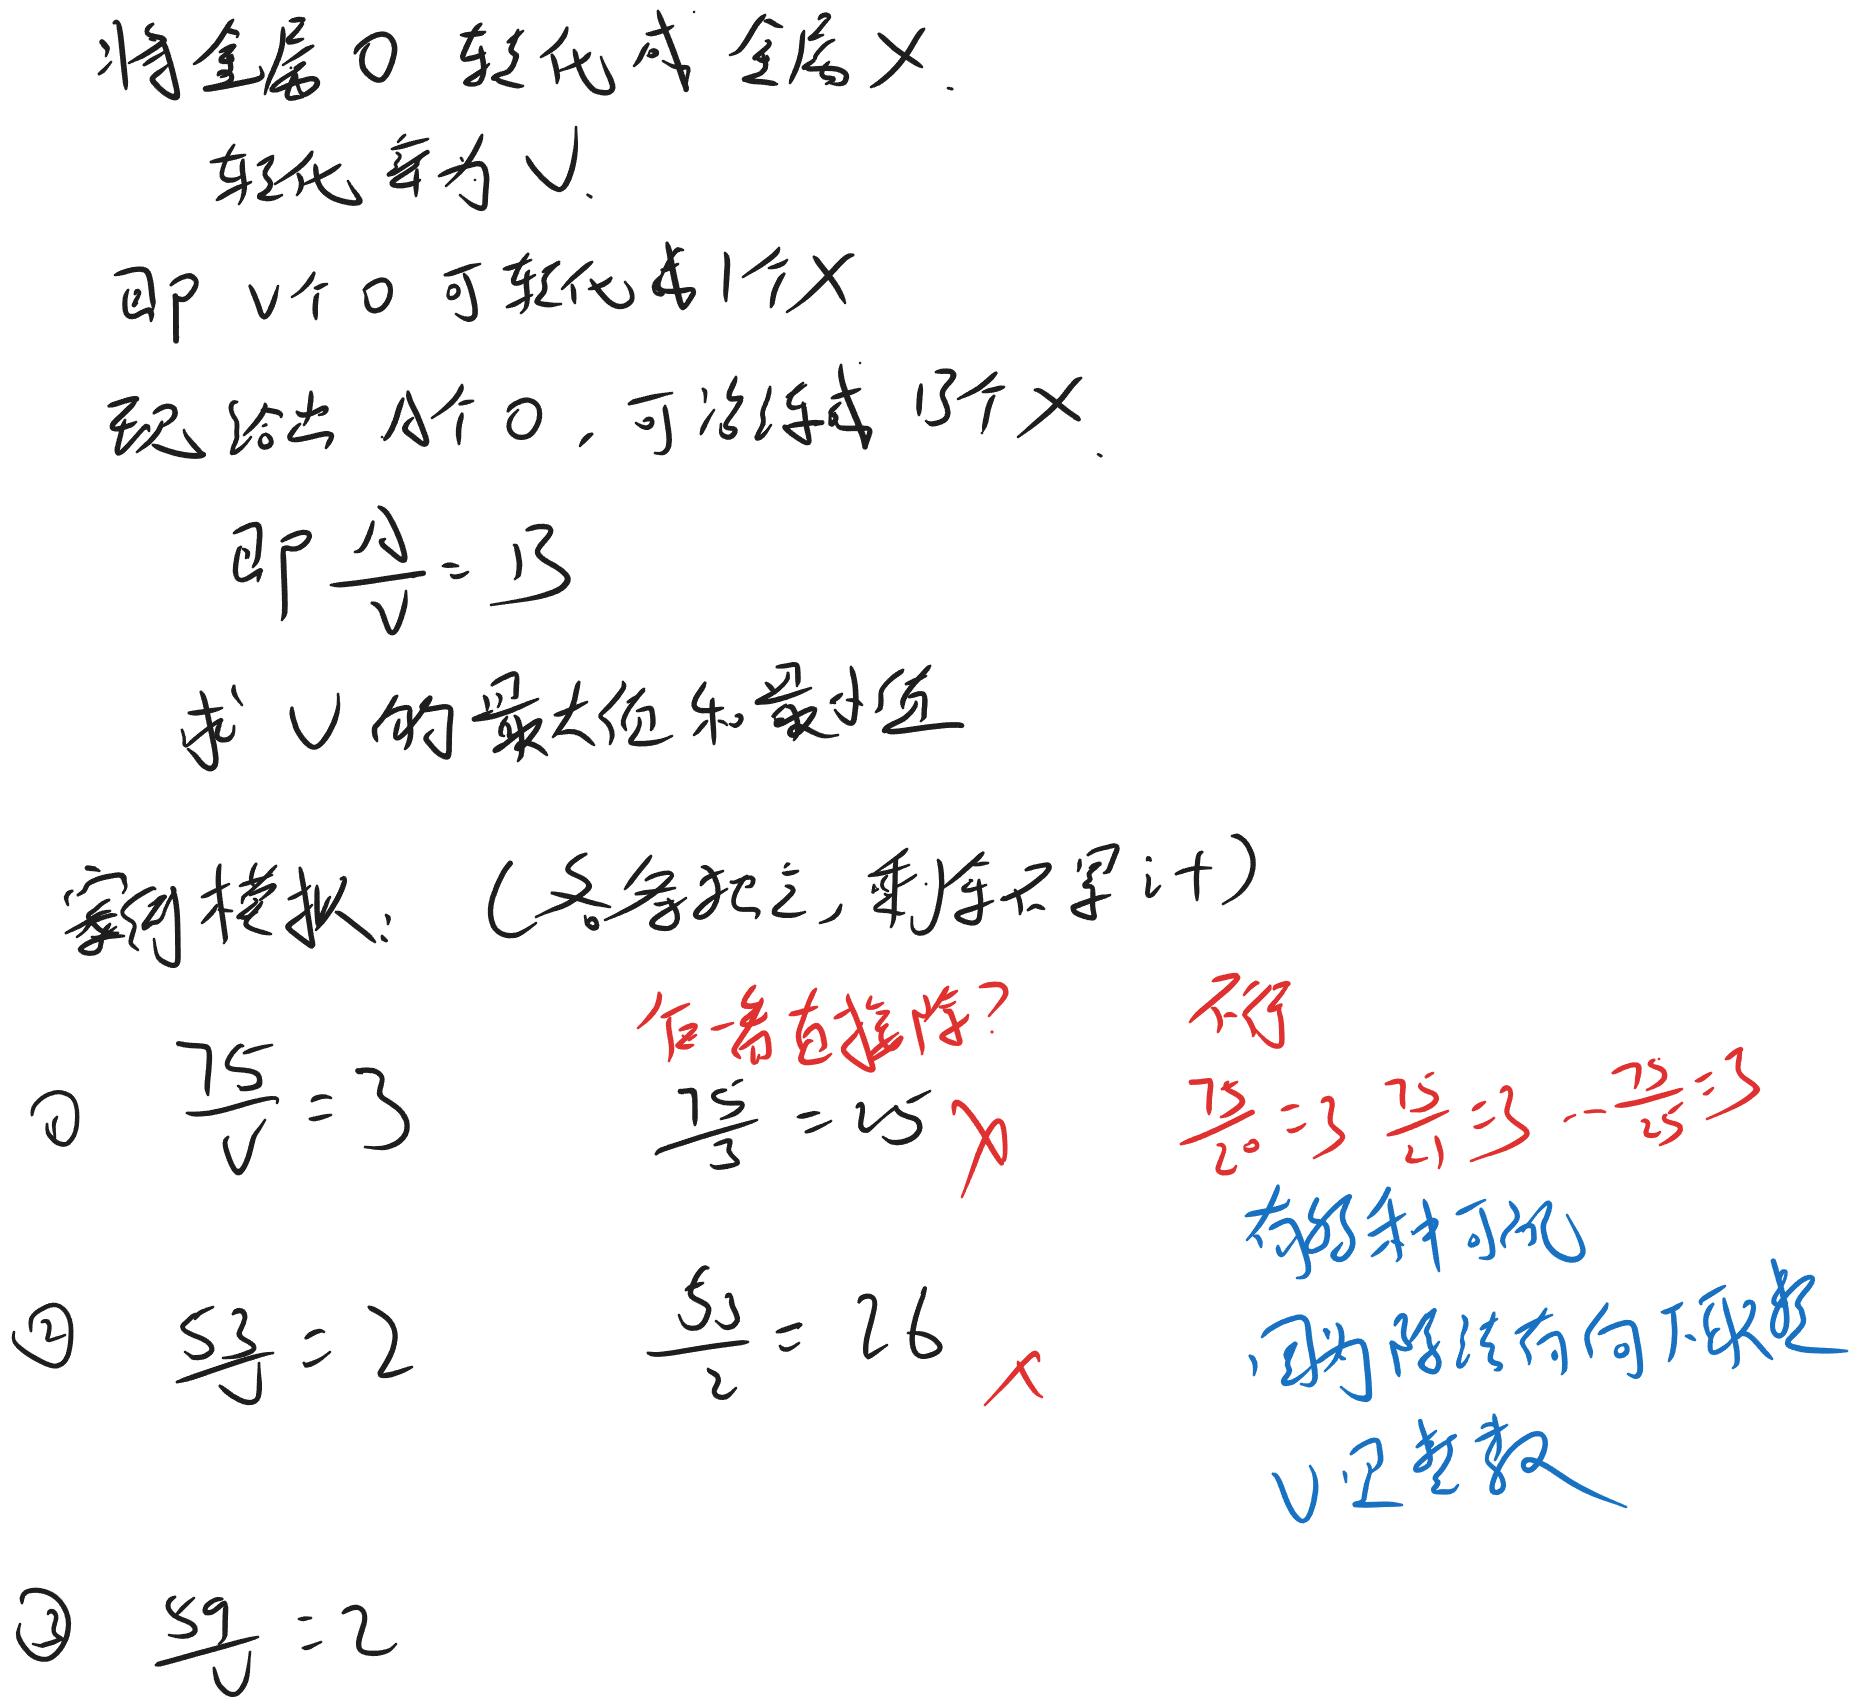 将金属O 转化成 金属X.
转化率为 V.
即 V个O 可转化成1个X
现给出 A个O, 可冶炼成 B个X.
即 A/V = B
求 V 的最大值和最小值
案例模拟: (炉各独立, 剩余不累计)
乍一看直接除? 不行
① 75/V = 3 75/3 = 25 X 75/20 = 3 75/21 = 3 ... 75/25 = 3
有好多种可能
② 53/V = 2 53/2 = 26 X
因为除法有向下取整
V 正整数
③ 59/V = 2